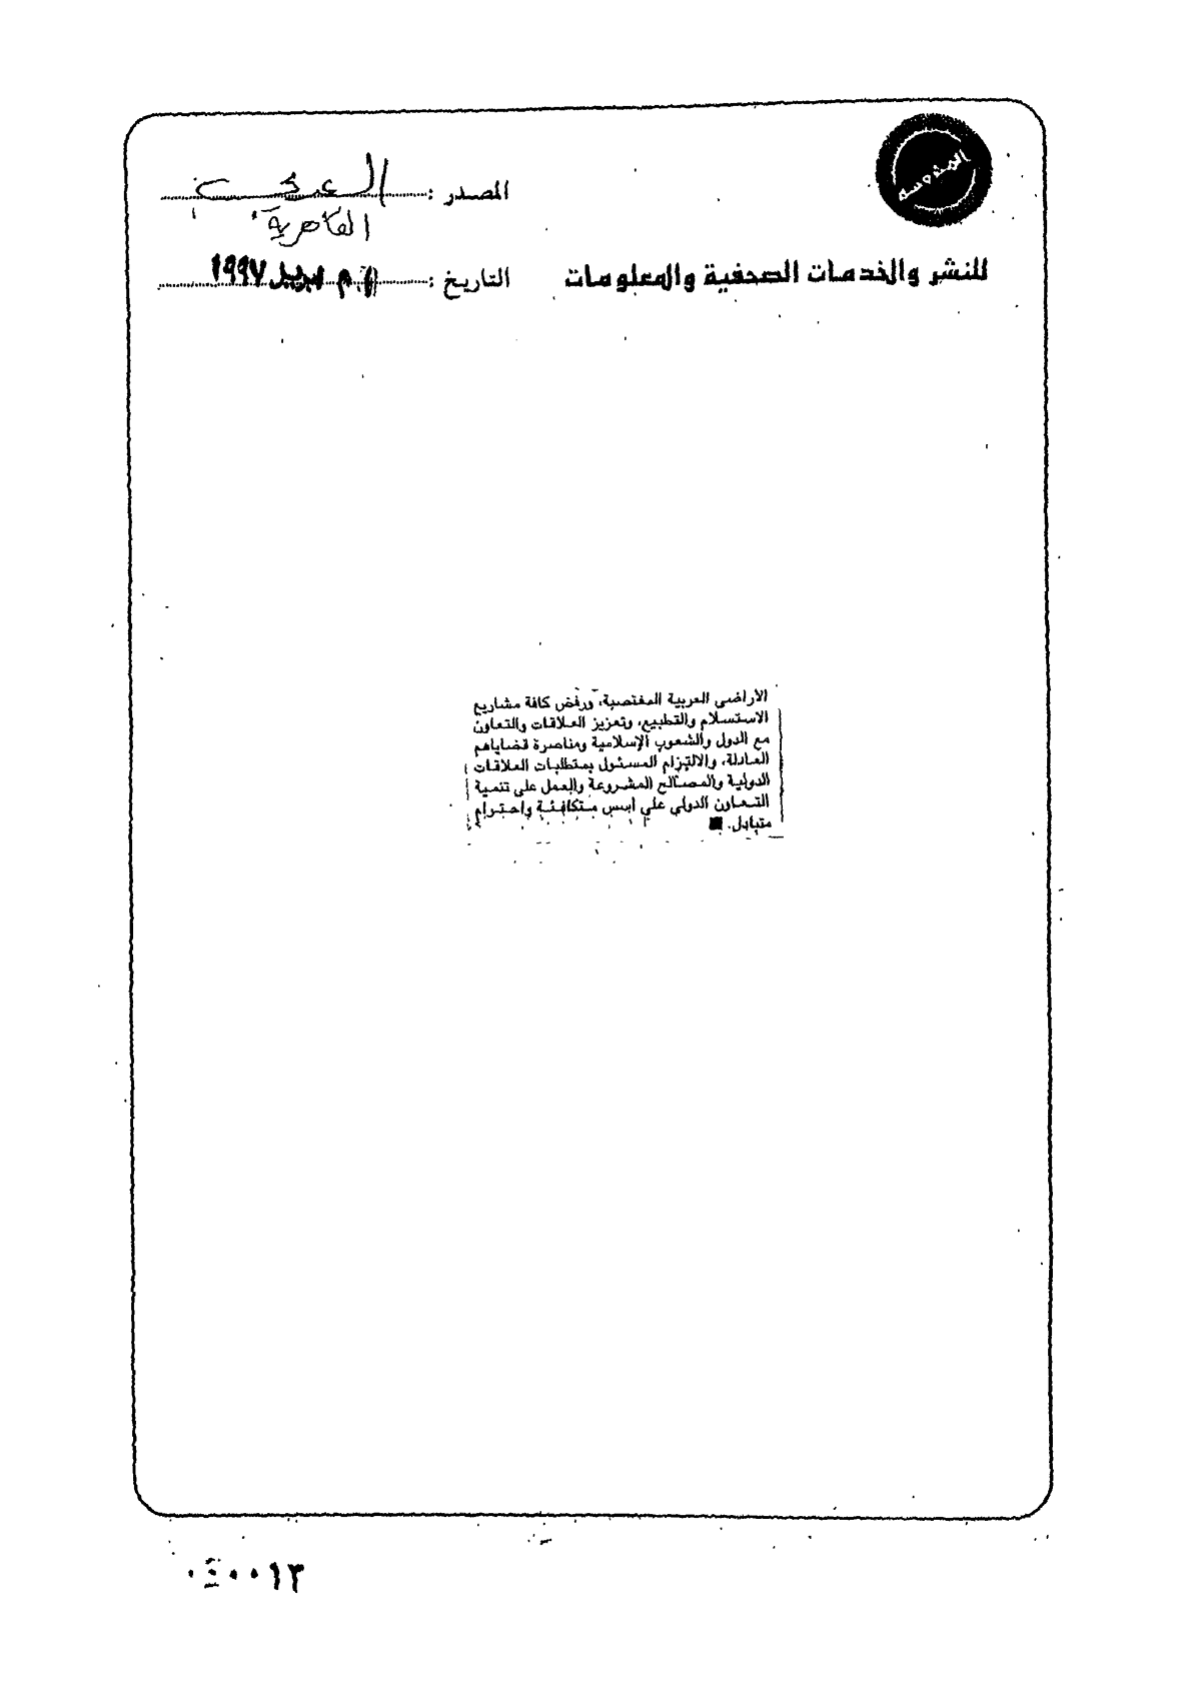 المحروسة
المصدر : العربي
القاهرية
للنشر والخدمات الصحفية والمعلومات
التاريخ : ابريل ١٩٩٧
الأراضى العربية المغتصبة، ورفض كافة مشاريع
الاستسلام والتطبيع، وتعزيز العلاقات والتعاون
مع الدول والشعوب الإسلامية ومناصرة قضاياهم
العادلة، والالتزام المسئول بمتطلبات العلاقات
الدولية والمصالح المشروعة والعمل على تنمية
التعاون الدولي على اسس متكافئة واحترام
متبادل. ■